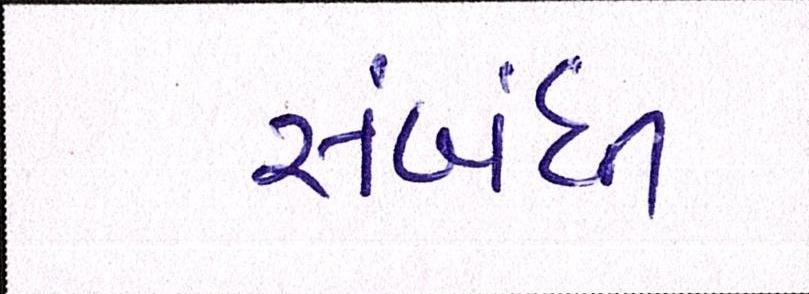 સંબંધી